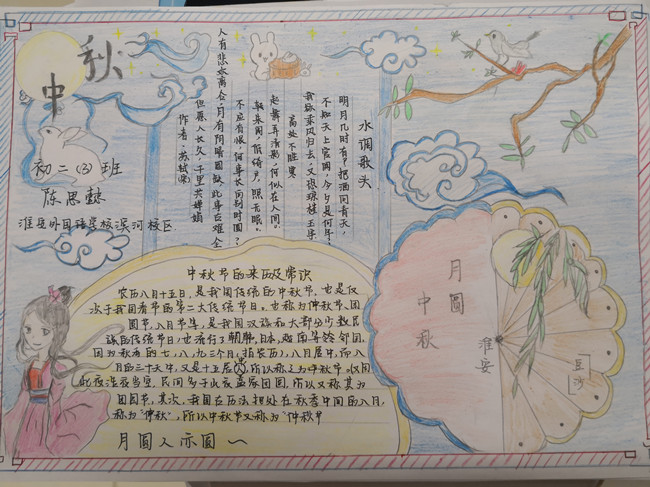 中秋
初二(3)班
陈思懿
淮安外国语学校滨河校区
水调歌头
明月几时有?把酒问青天,
不知天上宫阙,今夕是何年?
我欲乘风归去,又恐琼楼玉宇
高处不胜寒
起舞弄清影,何似在人间。
转朱阁,低绮户,照无眠。
不应有恨,何事长向别时圆?
人有悲欢离合,月有阴晴圆缺,此事古难全
但愿人长久,千里共婵娟
作者:苏轼(宋)
中秋节的来历及常识
农历八月十五日,是我国传统的中秋节,也是仅
次于我国春节的第二大传统节日。也称为仲秋节、团
圆节,八月节等,是我国汉族和大部分少数民
族的传统节日;也流行于朝鲜,日本,越南等邻国。
因为秋季的七、八、九三个月(指农历),八月居中,而八
月的三十天中,又是十五居中,所以称之为中秋节。
此夜浩瓷当空,民间多于此夜盫家团圆,所以又称其为
团圆节,其次,我国在历法把处在秋季中间的八月,
称为"仲秋",所以中秋节又称为"仲秋节
月圆人亦圆~
月圓
中秋
淮安
豆沙